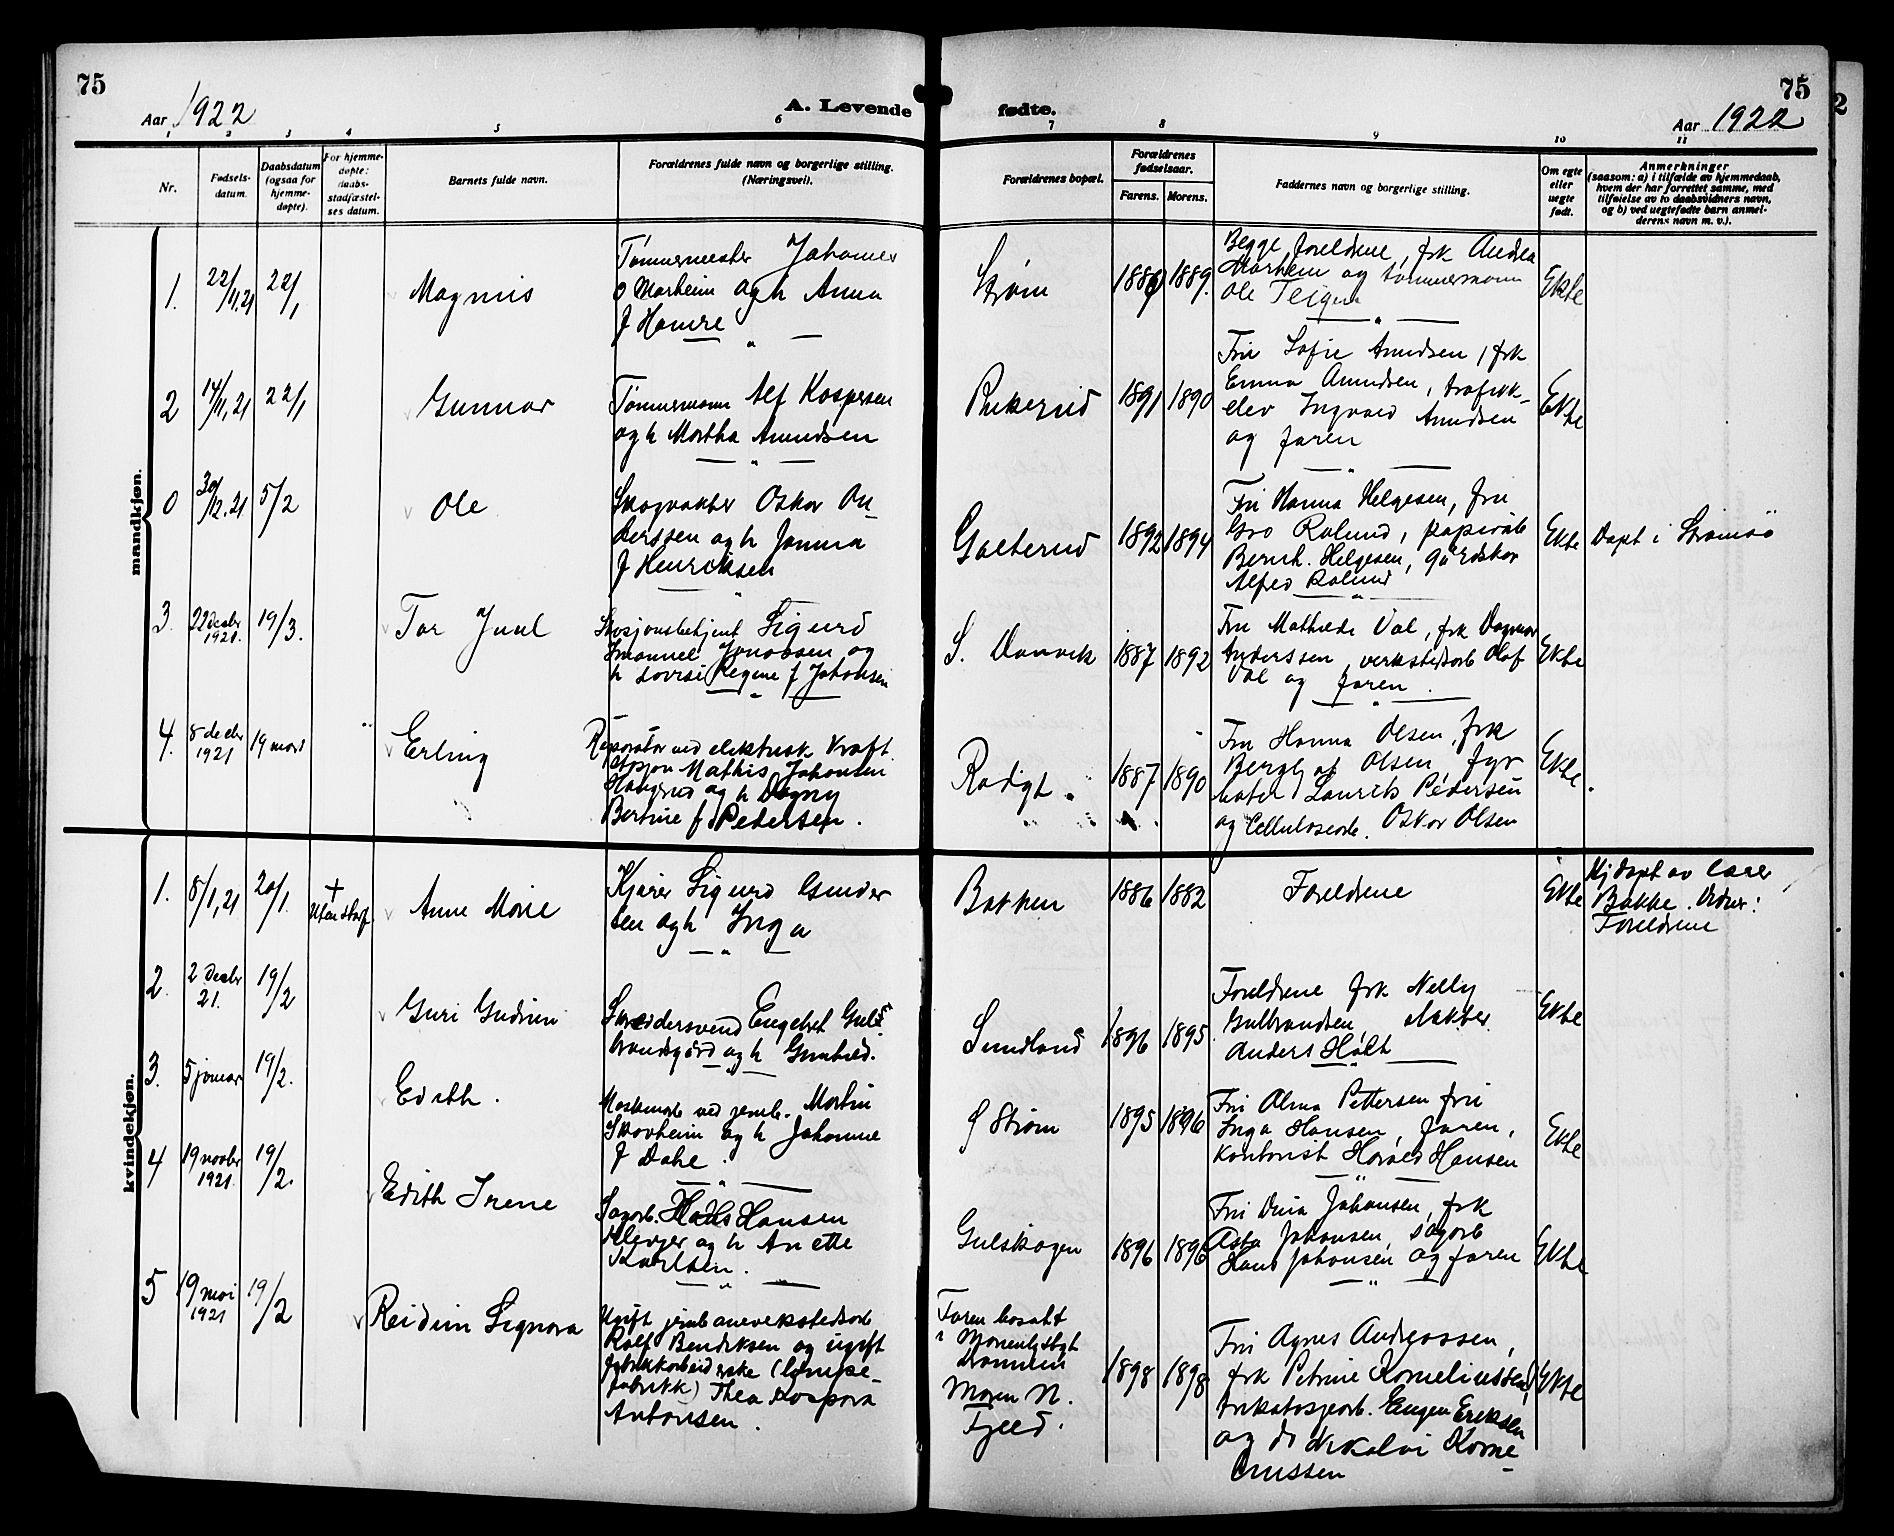 75
75
2
Aar 1922
A. Levende fødte.
Aar 1922
1 2 3 4 5 6 7 8 9 10 11
Nr.
Fødsels-
datum.
Daabsdatum
(ogsaa for
hjemme-
døpte).
For hjemme-
døpte:
daabs-
stadfæstel-
ses datum.
Barnets fulde navn.
Forældrenes fulde navn og borgerlige stilling.
(Næringsvei).
Forældrenes bopæl.
Forældrenes
fødselsaar.
Farens. Morens.
Faddernes navn og borgerlige stilling.
Om egte
eller
uegte
født.
Anmerkninger
(saasom: a) i tilfælde av hjemmedaab,
hvem der har forrettet samme, med
tilføielse av to daabsvidners navn,
og b) ved uegtefødte barn anmel-
derens navn m. v.).
mandkjøn.
1. 22/11.21 22/1 Magnus
Tømmermester Johannes
O Morheim og h Anna
f Hamre
Strøm 1886 1889.
Begge foreldrene, frk Andrea
Morheim og tømmermann
Ole Teigen
Ekte
2 14/11.21 22/1 Gunnar
Tømmermann Alf Kaspersen
og h Martha Amundsen
1891 1890
Fru Sofie Amundsen, frk
Emma Amundsen, trafikk-
elev Ingvald Amundsen
og faren
Ekte
0 30/12.21 5/2 Ole
Skogvokter Oskar An-
derssen og h Janna
f Henriksen
Golterud 1892 1894
Fru Hanna Helgesen, fru
Gro Rolund, papirarb
Bernh. Helgesen, gårdskar
Alfred Rolund
Ekte Døpt i Strømsø
3. 22 Decbr 1921. 19/3. Tor Juul
Stasjonsbetjent Sigurd
Emanuel Jonassen og
h Lovise Regine f Johansen
S. Danvik 1887 1892
Fru Mathilde Vol, frk Dagmar
Anderssen, verkstedsarb Olaf
Vol og faren.
Ekte
4. 8 decbr 1921 19 mars Erling
Reparatør ved elektrisk kraft
stasjon Mathis Johansen
Haugerud og h Dagny
Bertine f Pedersen.
Rødgt. 1887 1890
Fru Hanna Olsen, frk
Bergljot Olsen, fyr
bøter Laurits Pedersen
og Cellulosearb. Oskar Olsen
Ekte.
kvindekjøn.
1. 8/1, 21 20/1. + Uten stadf Anne Marie
Kjører Sigurd Gunder
sen og h Inga
Bakken 1886 1882
Foreldrene
Ekte
Hj døpt av lærer
Bakke. Vidner:
Foreldrene
2. 2 Decbr 21. 19/2 Guri Gudrun
Skreddersvend Engebret Gulds-
brandsgård og h Gunhild.
Sundland 1896 1895
Foreldrene frk Nelly
Gulbrandsen, slakter
Anders Holt
Ekte
3. 5 januar 19/2. Edith.
Maskinarb ved jernb. Martin
Skovheim og h Johanne
f Dahl.
G Strøm 1895 1896
Fru Alma Pettersen fru
Inga Hansen, faren,
kontorist Harald Hansen
Ekte
4 19 novbr 1921. 19/2. Edith Irene
Sagarb. Hans Hansen
Klevjer og h Anette
Karlsen.
Gulskogen 1896 1896
Fru Dina Johansen, frk
Asta Johansen, sagarb
Hans Johansen og faren
Ekte
5 19 mai 1921 19/2 Reidun Signora
Ugift jernbaneverkstedsarb
Rolf Bendiksen og ugift
fabrikkarbeiderske (lampe-
fabrikk) Thea Kaspora
Antonsen.
Faren bosatt
i Marienlystgt
Drammen
Moren N.
Fjeld.
1898 1898
Fru Agnes Andreassen,
frk Petrine Korneliussen,
trikotasjearb. Eugen Eriksen
og do Nikolai Korne-
liussen
Ekte